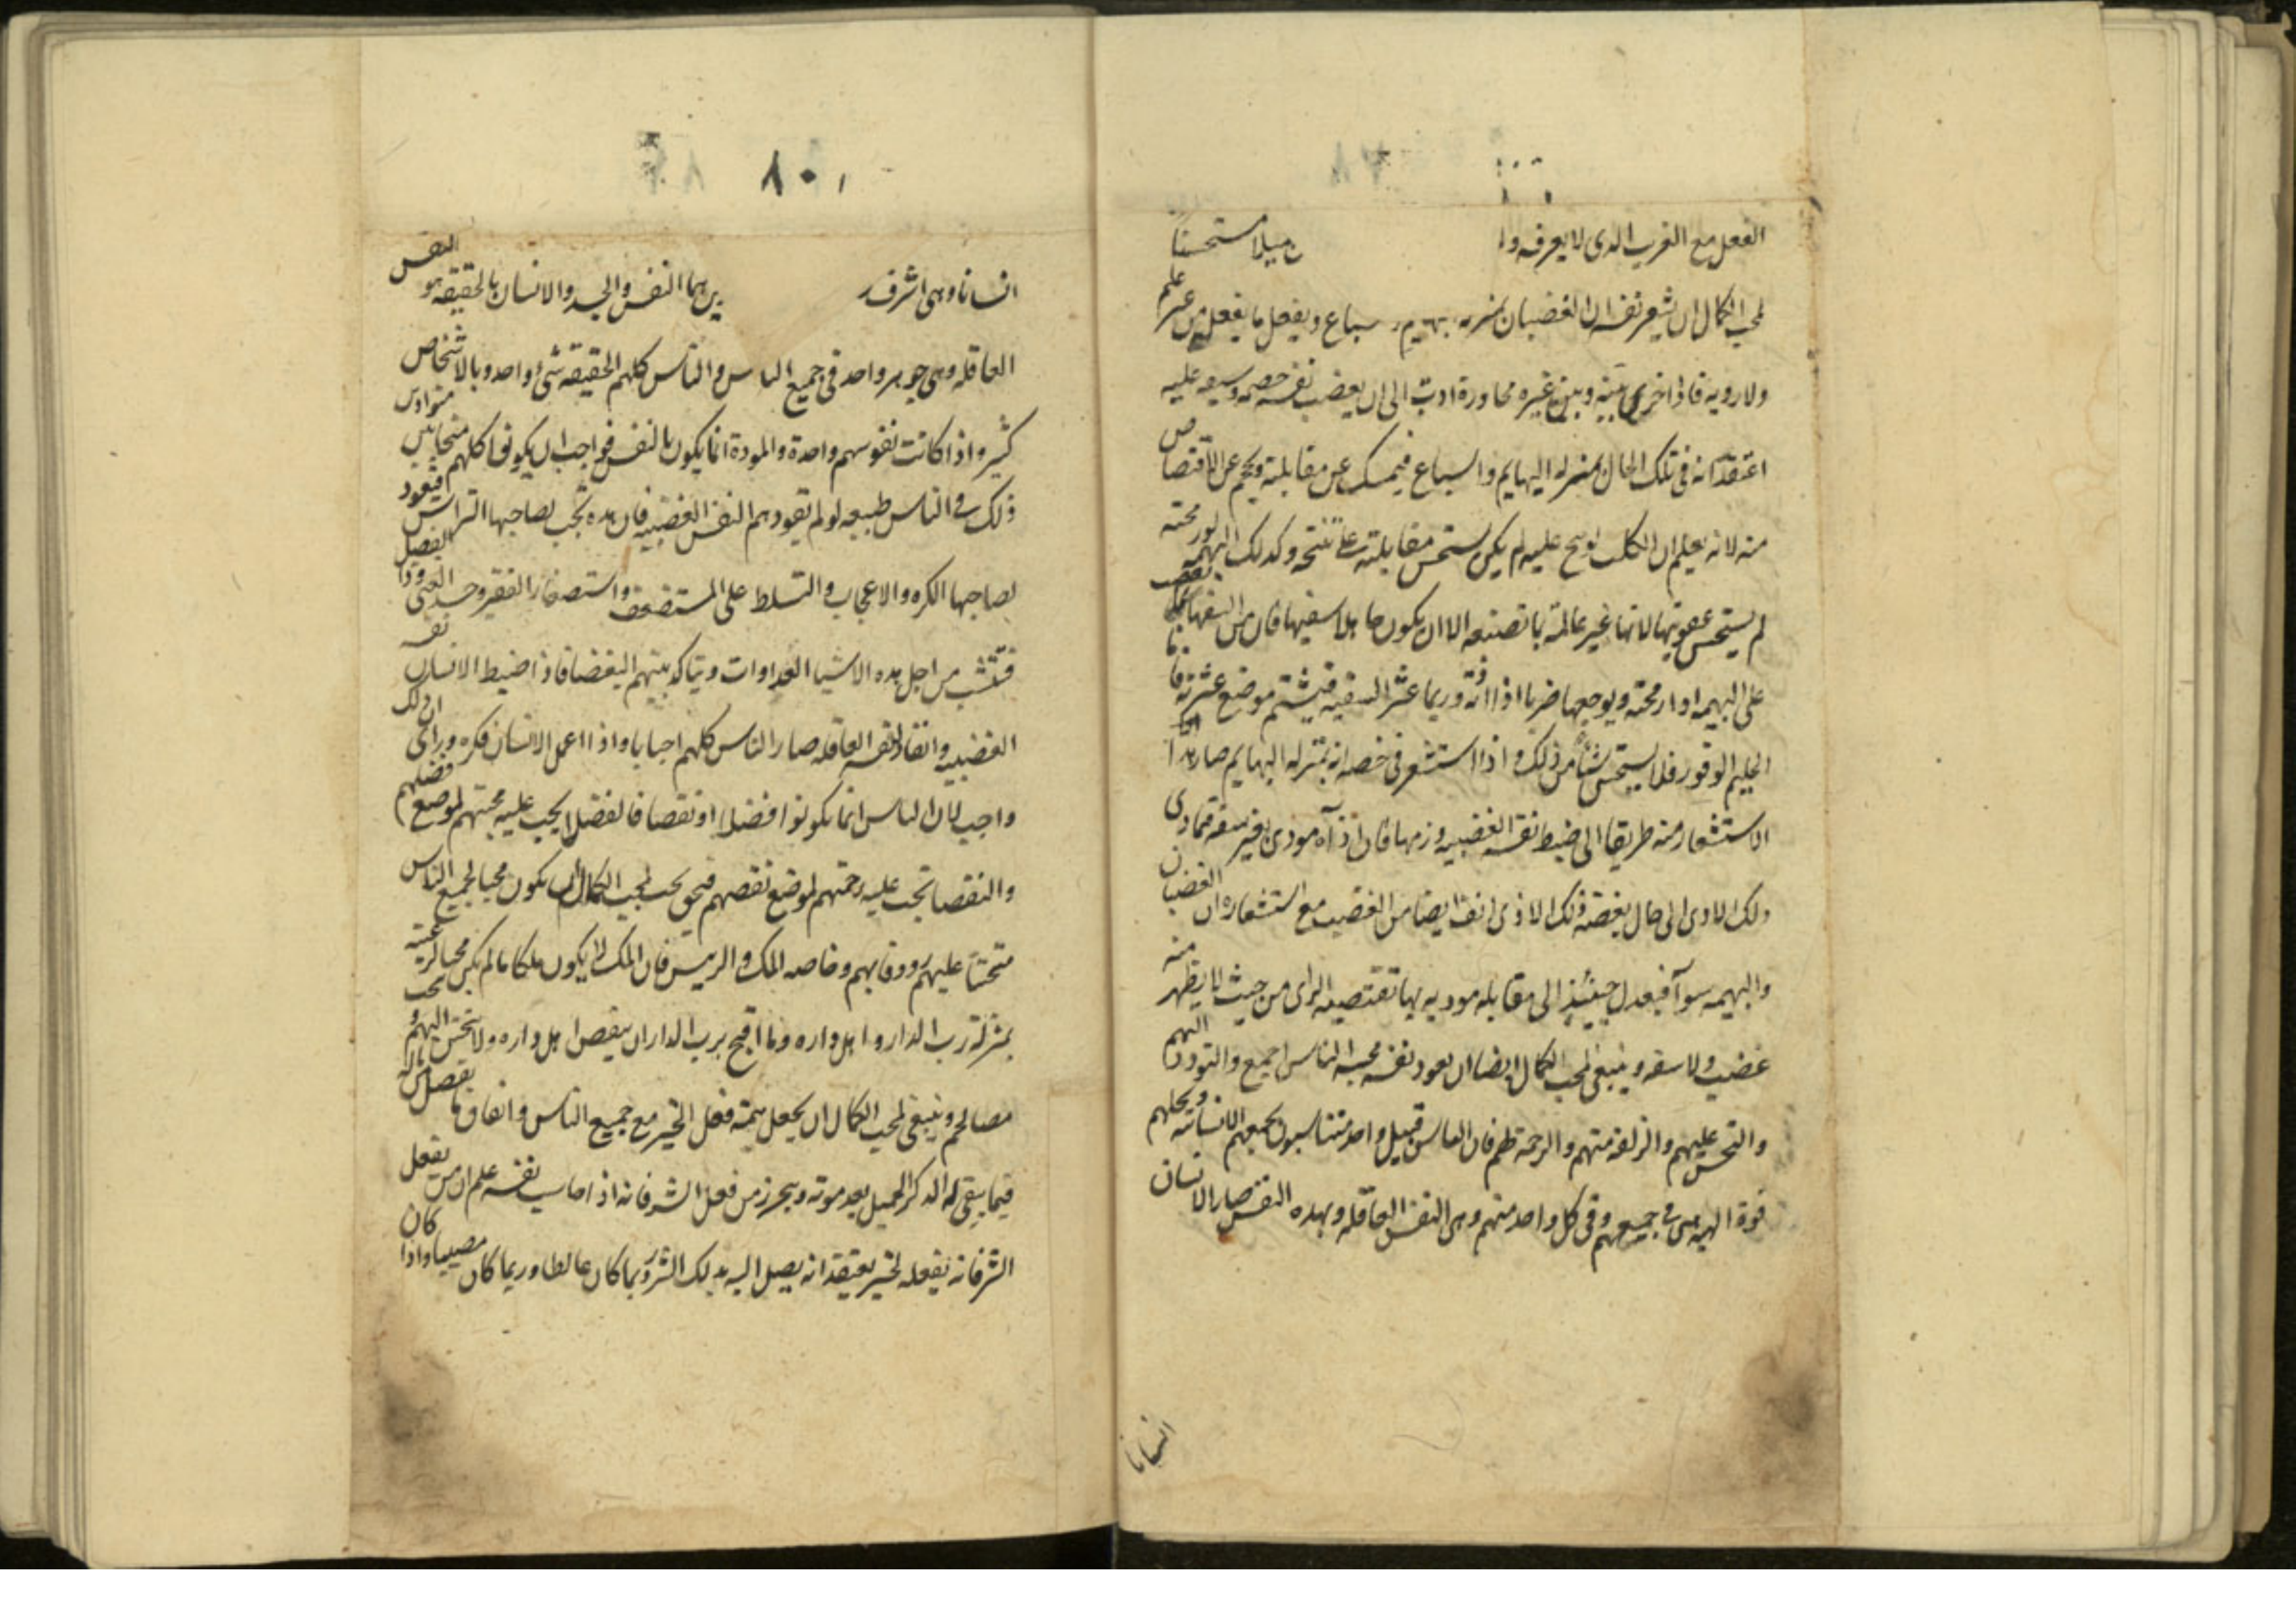 الفعل مع الغريب الذى لا يعرفه وا ميلا مستحسنا
لمحب الكمال ان يشعر نفسه ان الغضبان بمنزله سباع ويفعل ما يفعل من غير علم
ولا رويه فاذا جرى بينه وبين غيره محاورة ادت الى ان يغضب نفس خصمه ويسعه عليه
اعتقد انه فى تلك الحال بمنزله البهايم والسباع فيمسك عن مقابلته ويحجم عن الاقتصاص
منه لانه يعلم ان الكلب لو نبح عليه لم يكن يستحسن مقابلته على نبحه وكذلك البهيمه لو رمحته
لم يستحسن عقوبتها لانها غير عالمة بما تصنعه الا ان يكون جاهلا سفيها فان من السفها من يغضب
على البهيمه اذا رمحته ويوجعها ضربا اذا اذته وربما عثر السفيه فيشتم موضع عثرته فاما
الحليم الوقور فلا يستحسن شيأ من ذلك واذا استشعر فى خصمه انه بمنزله البهايم صار هذا
الاستشعار منه طريقا الى ضبط نفسه الغضبيه وزمها فان اذاه موذى بغير سفه فتمادى
ذلك الاذى الى حال يغضه ذلك الاذى انف ايضا من الغضب مع استشعاره ان الغضبان
والبهيمه سوآ فيعدل حينئذ الى مقابله موذيه بما تقتضيه الراى من حيث لا يظهر منه
غضب ولا سفه وينبغى لمحب الكمال ايضا ان يعود نفسه محبه الناس اجمع والتودد اليهم
والتحنن عليهم والرافة منهم والرحمة لهم فان الناس قبيل واحد متناسبون يجمعهم الانسانيه وبحليهم
قوة الهيه هى فى جميعهم وفى كل واحد منهم وهى النفس العاقله وبهذه النفس صار الانسان
انسانا
١٠٨
انسانا وهى اشرف هما النفس والجسد والانسان بالحقيقه هو النفس
العاقله وهى جوهر واحد فى جميع الناس والناس كلهم بالحقيقه شئ واحد وبالاشخاص
كثير واذا كانت نفوسهم واحدة والمودة انما يكون بالنفس فواجب ان يكونوا كلهم متحابين متوادين
ذلك فى الناس طبيعه لو لم تقودهم النفس الغضبيه فان هذه تحب لصاحبها التراس فيعود
لصاحبها الكره والاعجاب والتسلط على المستضعف واستصغار الفقير وحسد الغنى وذا الفضل
فتنتشب من اجل هذه الاشيا العداوات ويتاكد بينهم البغضا فاذا ضبط الانسان نفسه
الغضبيه وانقاد لنفسه العاقله صار الناس كلهم احبابا واذا اعمل الانسان فكره وراى ان ذلك
واجب لان الناس انما يكونوا افضلا او نقصا فالفضلا يجب عليه محبتهم لموضع فضلهم
والنقصا تجب عليه رحمتهم لموضع نقصهم فبحق يجب لمحب الكمال ان يكون محبا لجميع الناس
متحننا عليهم رووفا بهم وخاصه الملك والرييس فان الملك لا يكون ملكا ما لم يكن محبا لرعيته
بمنزلة رب الدار واهل داره وما اقبح برب الدار ان يبغض اهل داره ولا يتحنن اليهم ولا يحب
مصالحهم وينبغى لمحب الكمال ان يجعل همته فعل الخير مع جميع الناس وانفاق ما يفضل من ماله
فيما يبقى له الذكر الجميل بعد موته ويحرز من فعل الشر فانه اذا حاسب نفسه علم ان من يفعل
الشر فانه يفعله لخير يعتقد انه يصل اليه بذلك الشر وربما كان غالطا وربما كان مصيبا واذا كان